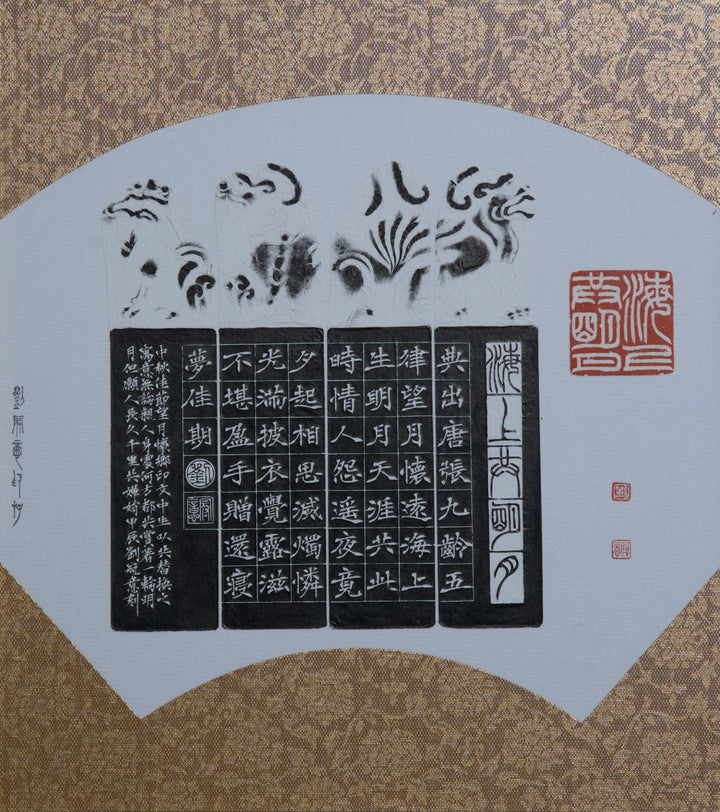 海上共明月
海上共明月
典出唐張九齡五
律望月懷遠海上
生明月天涯共此
時情人怨遥夜竟
夕起相思滅燭憐
光滿披衣覺露滋
不堪盈手贈還寢
夢佳期
劉
中秋佳節望月懷鄉印文中生以共替換之
寓意無論親人身處何方都共賞着一輪明
月但願人長久千里共嬋娟甲辰劉冠意刻
劉冠意印